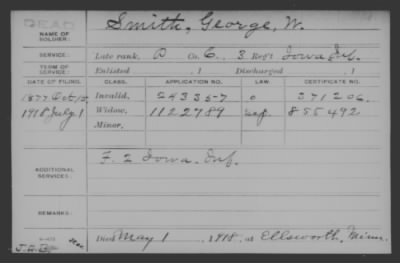 DEAD
NAME OF SOLDIER: Smith, George, W.
SERVICE: Late rank, P Co. C, 3 Reg't Iowa Inf.
TERM OF SERVICE: Enlisted , 1 Discharged , 1
DATE OF FILING. CLASS. APPLICATION NO. LAW. CERTIFICATE NO.
1877 Oct. Invalid, 243357 371206.
1918 July 1 Widow, 1122789 855492
Minor,
ADDITIONAL SERVICES: F. 2 Iowa. Inf.
REMARKS:
Died May 1, 1918, at Ellsworth, Minn.
J.W.B.